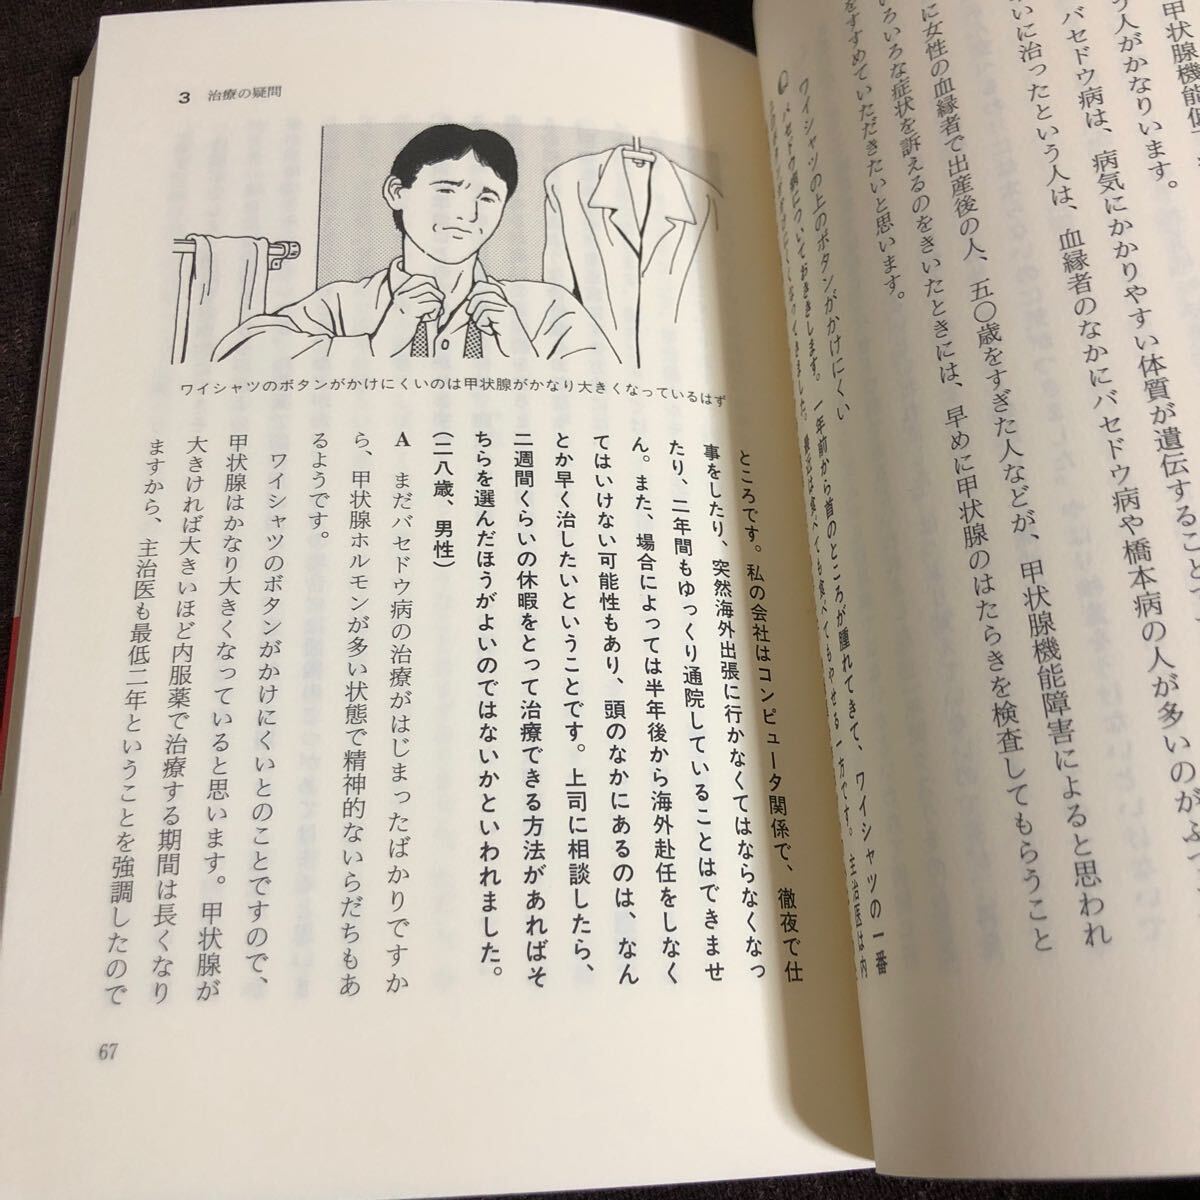 甲状腺機能低
う人がかなりいます。
バセドウ病は、病気にかかりやすい体質が遺伝すること
いに治ったという人は、血縁者のなかにバセドウ病や橋本病の人が多いのが
に女性の血縁者で出産後の人、五〇歳をすぎた人などが、甲状腺機能障害によると思われ
いろいろな症状を訴えるのをきいたときには、早めに甲状腺のはたらきを検査してもらうこと
をすすめていただきたいと思います。
ワイシャツの上のボタンがかけにくい
Q バセドウ病についておききします。一年前から首のところが腫れてきて、ワイシャツの一番
食べても食べてもやせる一方です。主治医は内
3 治療の疑問
ワイシャツのボタンがかけにくいのは甲状腺がかなり大きくなっているはず
ところです。私の会社はコンピュータ関係で、徹夜で仕
事をしたり、突然海外出張に行かなくてはならなくなっ
たり、二年間もゆっくり通院していることはできませ
ん。また、場合によっては半年後から海外赴任をしなく
てはいけない可能性もあり、頭のなかにあるのは、なん
とか早く治したいということです。上司に相談したら、
二週間くらいの休暇をとって治療できる方法があればそ
ちらを選んだほうがよいのではないかといわれました。
(二八歳、男性)
A まだバセドウ病の治療がはじまったばかりですか
ら、甲状腺ホルモンが多い状態で精神的ないらだちもあ
るようです。
ワイシャツのボタンがかけにくいとのことですので、
甲状腺はかなり大きくなっていると思います。甲状腺が
大きければ大きいほど内服薬で治療する期間は長くなり
ますから、主治医も最低二年ということを強調したので
67